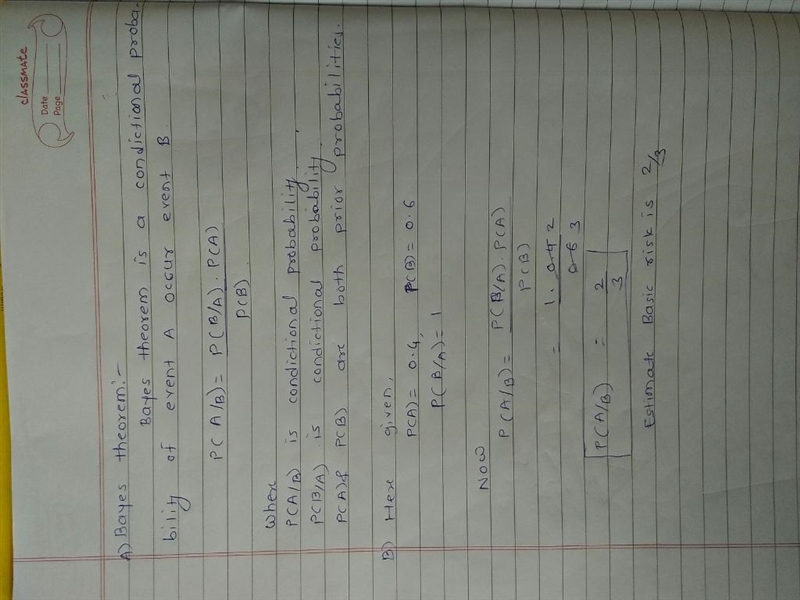 classmate
Date
Page
A) Bayes theorem:-
Bayes theorem is a condictional proba-
bility of event A occur event B.
P(A/B) = P(B/A) . P(A)
P(B)
Where
P(A/B) is condictional probability.
P(B/A) is condictional probability.
P(A) & P(B) are both prior probabilities.
B) Here given,
P(A) = 0.4, P(B) = 0.6
P(B/A) = 1
Now
P(A/B) = P(B/A) . P(A)
P(B)
= 1 . 0.4 2
0.6 3
P(A/B) = 2
3
Estimate Basic risk is 2/3